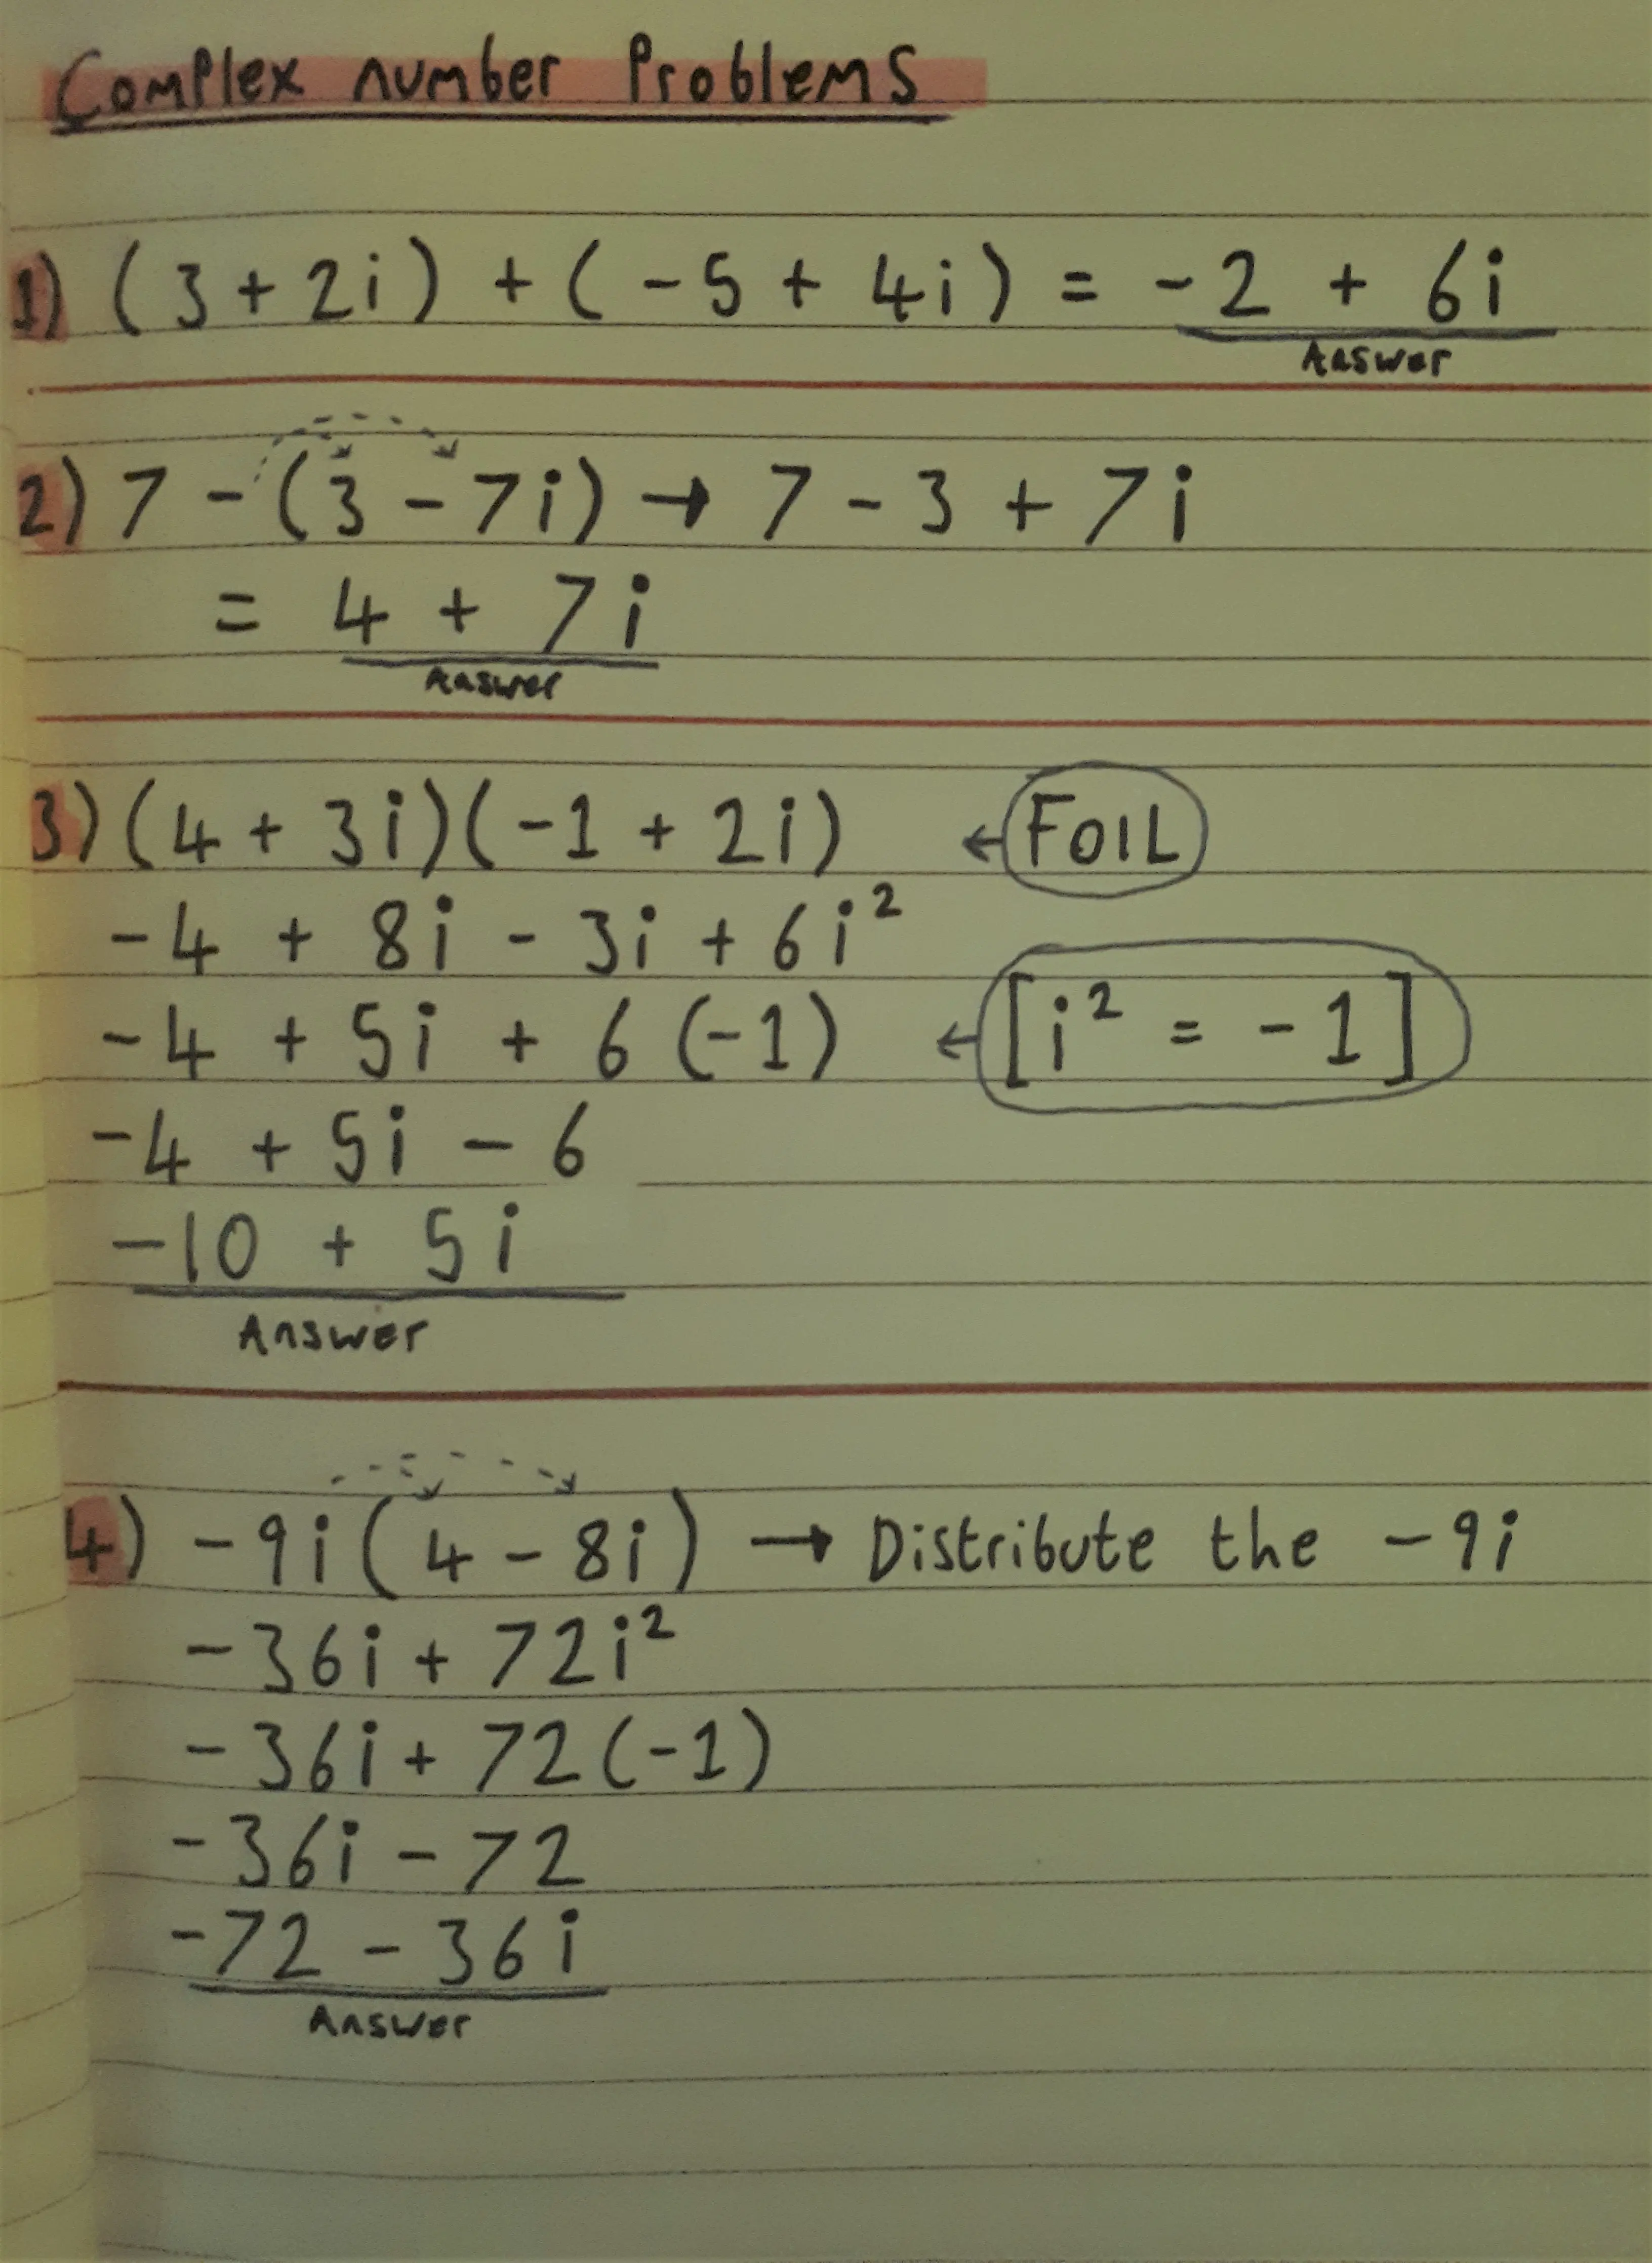 Complex number Problems
1) (3 + 2i) + (-5 + 4i) = -2 + 6i
Answer
2) 7 - (3 - 7i) → 7 - 3 + 7i
= 4 + 7i
Answer
3) (4 + 3i)(-1 + 2i) ← FOIL
-4 + 8i - 3i + 6i²
-4 + 5i + 6(-1) ← [i² = -1]
-4 + 5i - 6
-10 + 5i
Answer
4) -9i(4 - 8i) → Distribute the -9i
-36i + 72i²
-36i + 72(-1)
-36i - 72
-72 - 36i
Answer